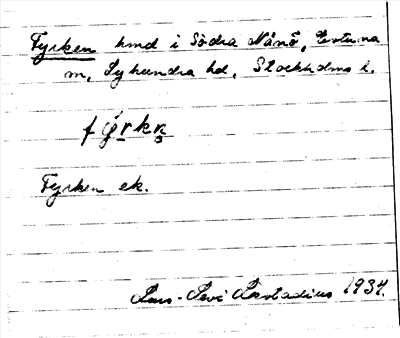 Fyrken hmd i Södra Nänö, Estuna
m, Lyhundra hd, Stockholms l.
fy̌rkn̥
Fyrken ek.
Lars-Levi Læstadius 1934.